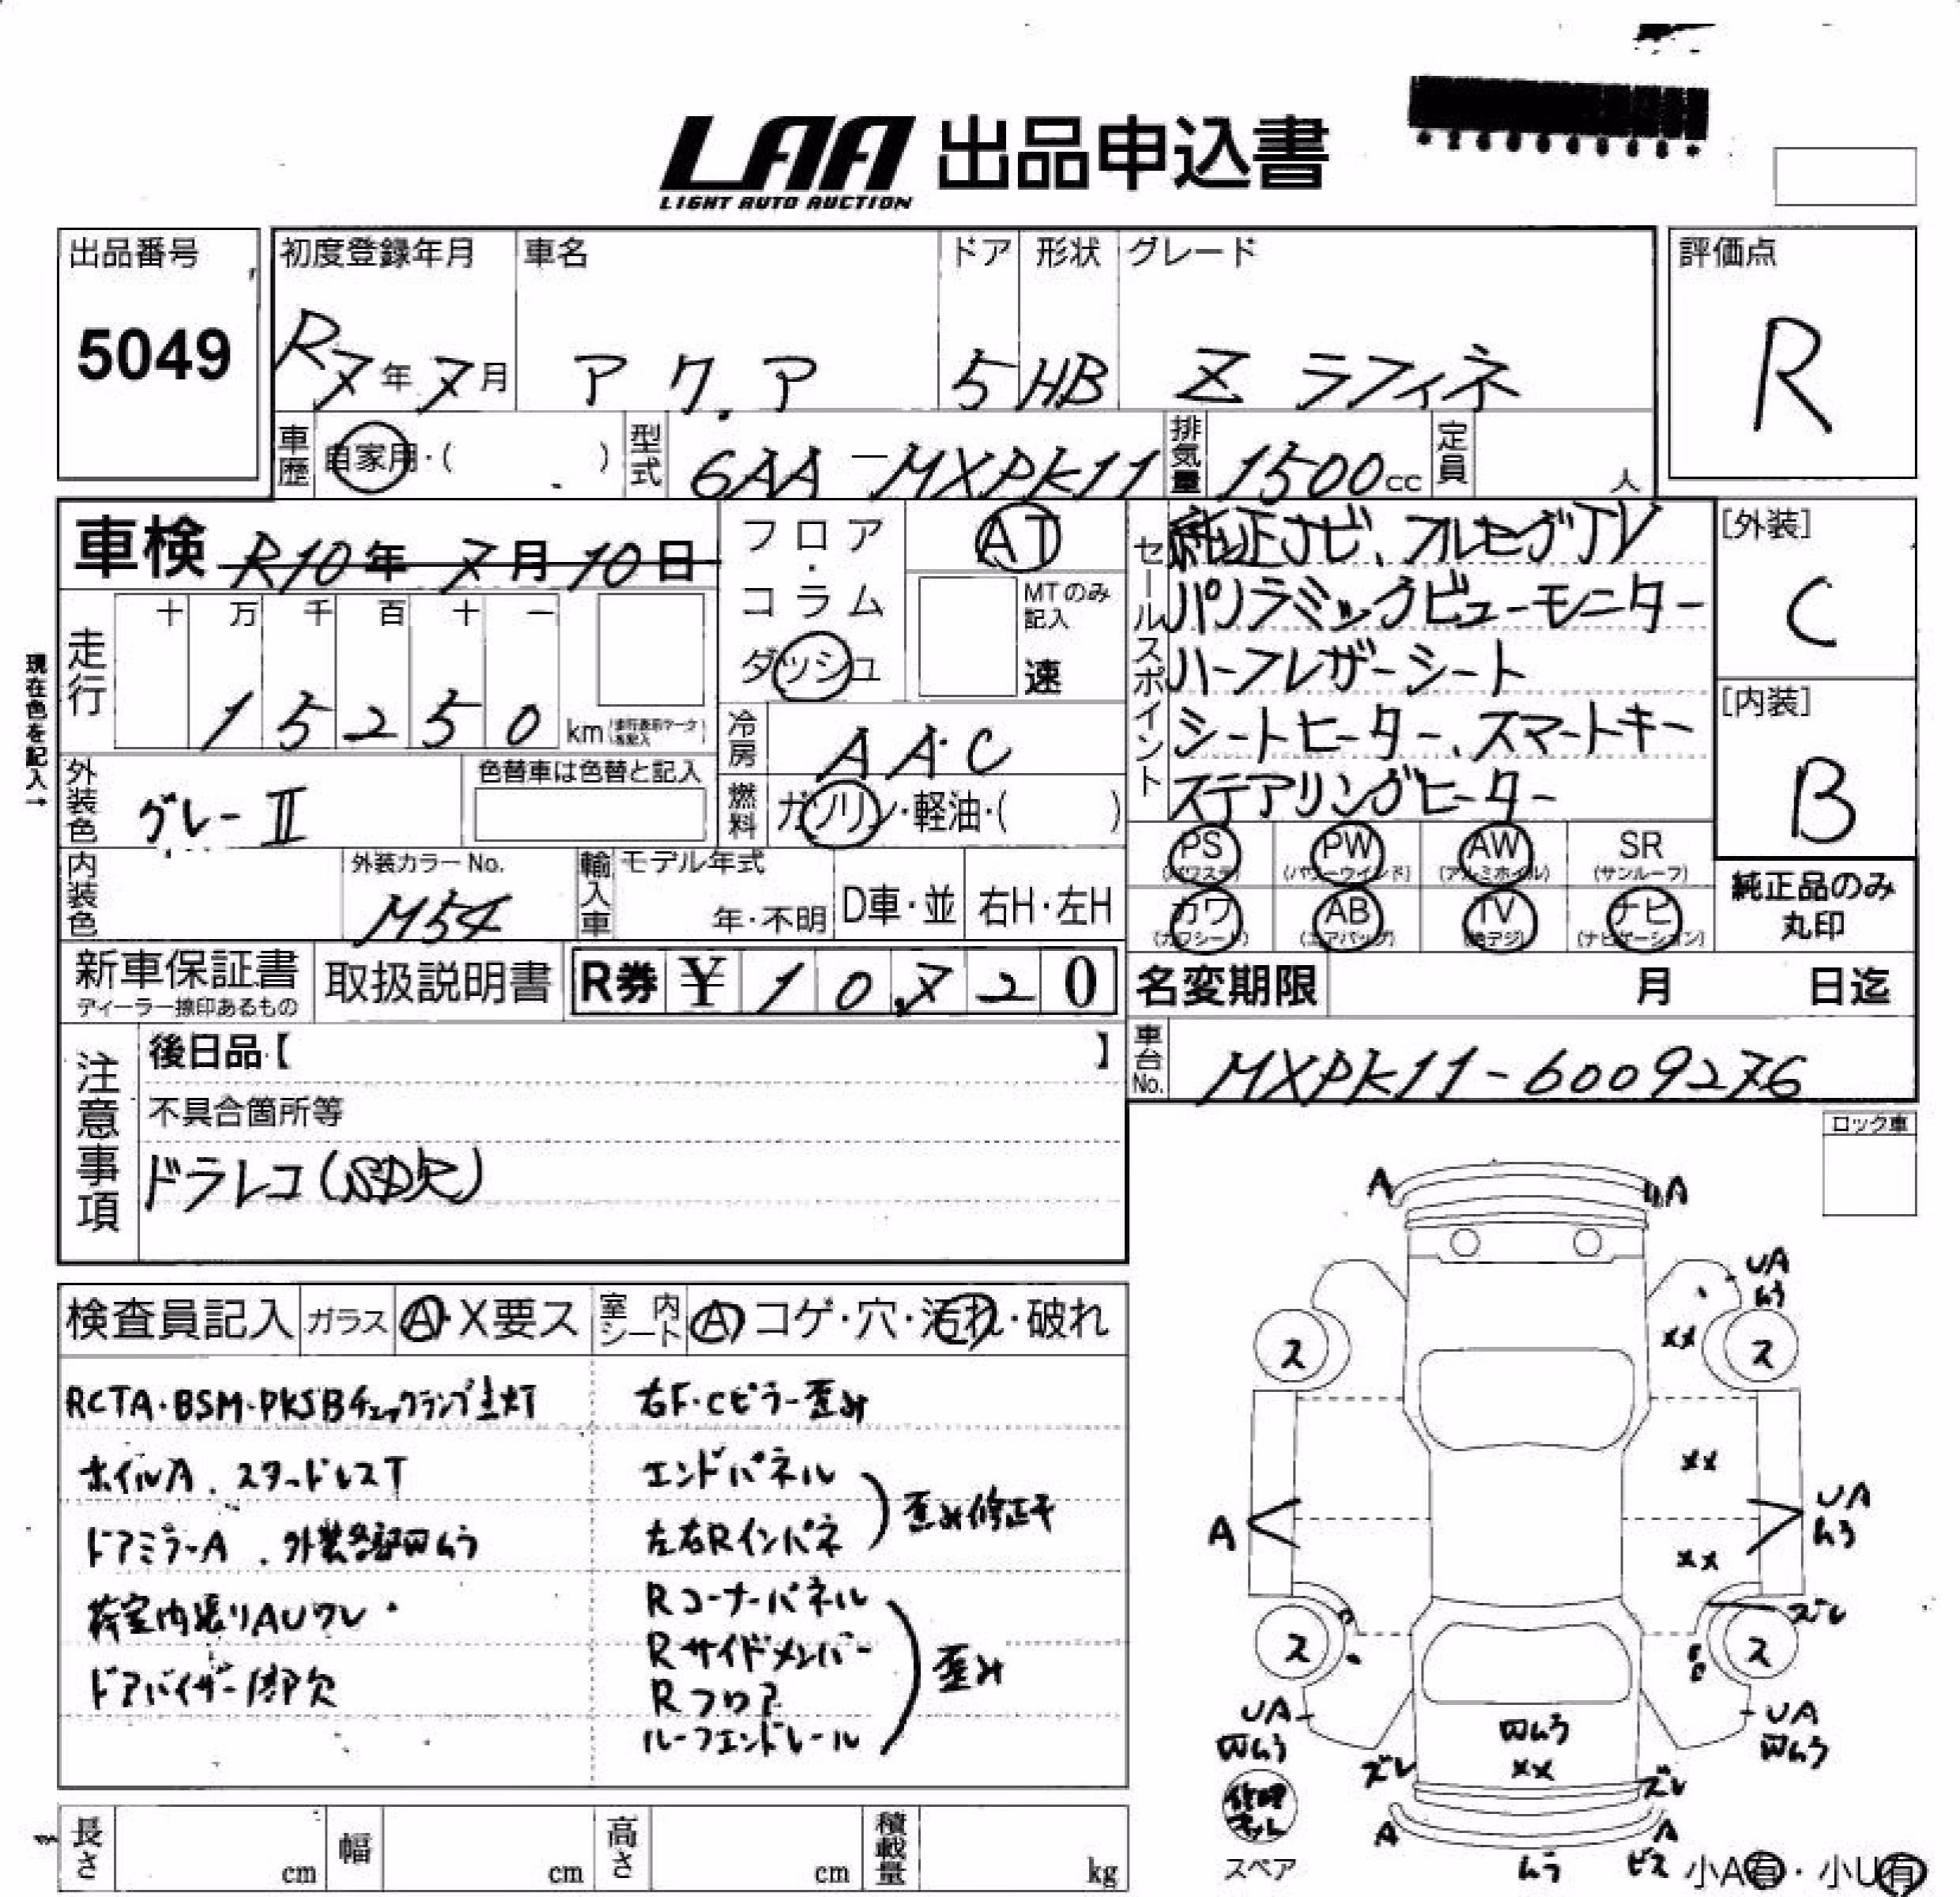 LAA 出品申込書
LIGHT AUTO AUCTION
出品番号
5049
初度登録年月
R7年7月
車名
アクア
ドア
5
形状
HB
グレード
Z ラフィネ
評価点
R
車歴
自家用・( )
型式
6AA-MXPK11
排気量
1500cc
定員
人
車検 R10年7月10日
フロア・コラム
ダッシュ
AT
MTのみ記入
速
セールスポイント
純正ナビ、フルセグTV
パノラミックビューモニター
ハーフレザーシート
シートヒーター、スマートキー
ステアリングヒーター
[外装]
C
[内装]
B
現在色を記入→
走行
十 万 千 百 十 一
15250
km
冷房
AAC
外装色
グレーII
色替車は色替と記入
燃料
ガソリン・軽油・( )
PS
(パワステ)
PW
(パワーウインド)
AW
(アルミホイル)
SR
(サンルーフ)
カワ
(カワシート)
AB
(エアバッグ)
TV
(地デジ)
ナビ
(ナビゲーション)
純正品のみ
丸印
内装色
外装カラーNo.
M54
輸入車
モデル年式
年・不明
D車・並
右H・左H
新車保証書
ディーラー捺印あるもの
取扱説明書
R券 ¥ 10,720
名変期限 月 日迄
車台No.
MXPK11-6009276
注意事項
後日品【 】
不具合箇所等
ドラレコ(SD欠)
ロック車
検査員記入
ガラス
A・X要ス
室内シート
A コゲ・穴・汚れ・破れ
RCTA・BSM・PKSBチェックランプ点灯
ホイルA．スタッドレスT
ドアミラーA．外装各部凹ムラ
荷室内張りAUワレ
ドアバイザー1部欠
右F・Cピラー歪み
エンドパネル
左右Rインパネ
歪み修正キ
Rコーナーパネル
Rサイドメンバー
Rフロア
ルーフエンドレール
歪み
A
A
UA
ムラ
XX
ス
ス
XX
A
UA
ムラ
XX
ズレ
ス
ス
UA
凹ムラ
UA
凹ムラ
凹ムラ
XX
ズレ
ズレ
修理キット
スペア
A
A
ムラ
ビス
小A有・小U有
長さ
cm
幅
cm
高さ
cm
積載量
kg